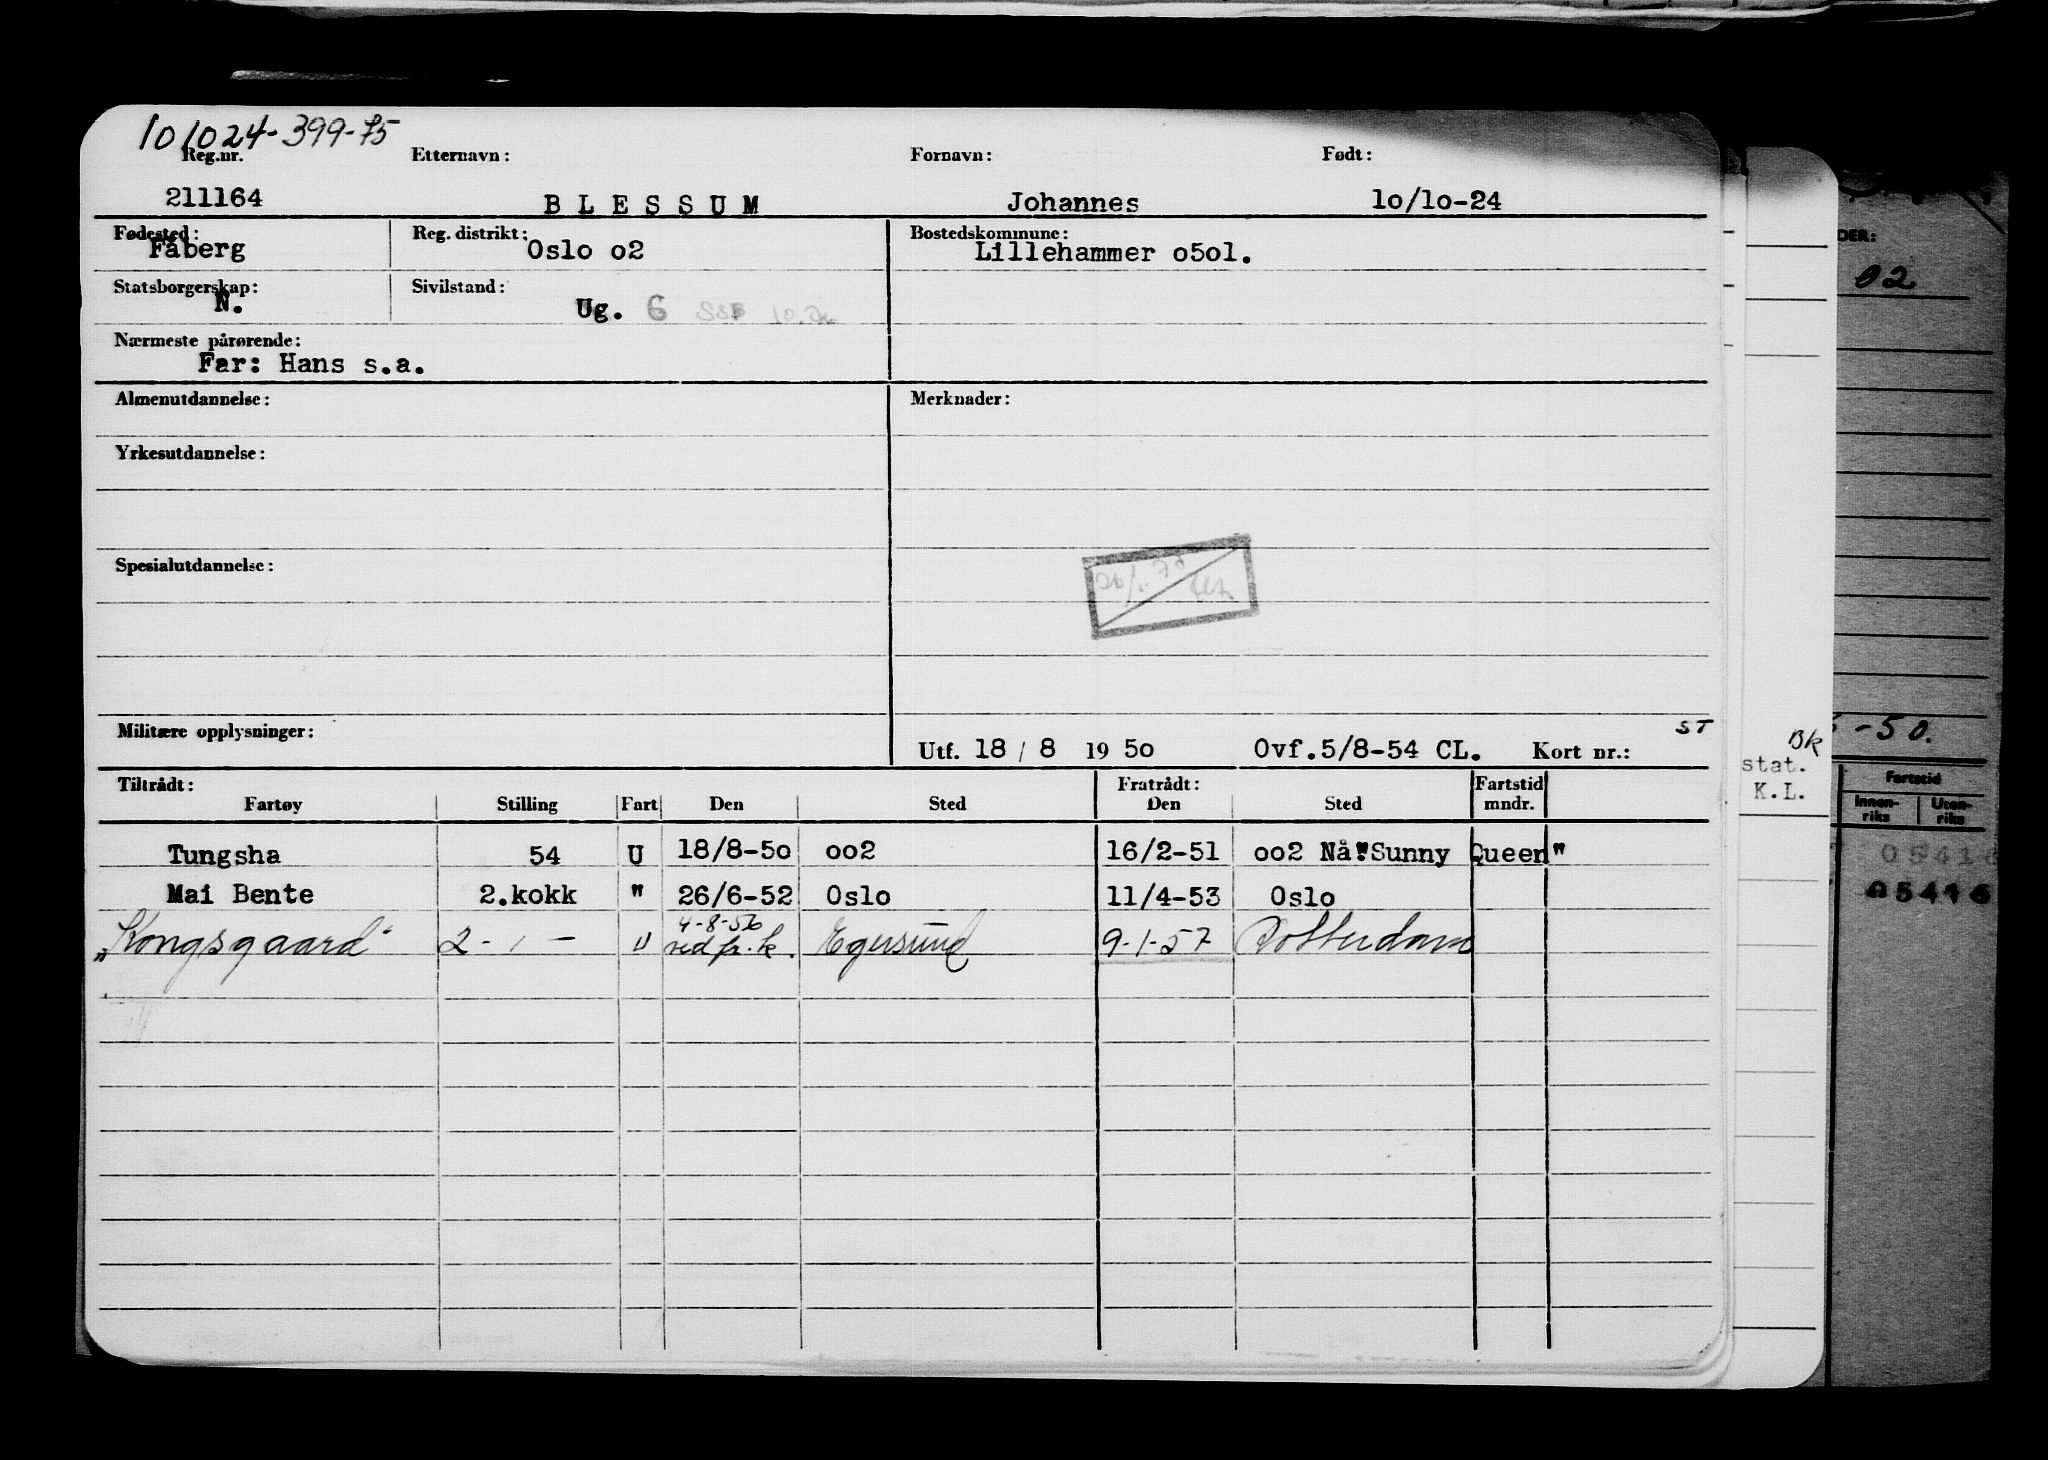 101024-399-75
Reg.nr. Etternavn: Fornavn: Født:
211164 BLESSUM Johannes 1o/1o-24
Fødested: Reg. distrikt: Bostedskommune:
Fåberg Oslo o2 Lillehammer o5o1.
Statsborgerskap: Sivilstand:
N. Ug. G SSB
Nærmeste pårørende:
Far: Hans s.a.
Almenutdannelse: Merknader:
Yrkesutdannelse:
Spesialutdannelse:
Militære opplysninger: ST
Utf. 18 / 8 19 5o Ovf.5/8-54 CL. Kort nr.:
Tiltrådt: Fratrådt: Fartstid
Fartøy Stilling Fart Den Sted Den Sted mndr.
Tungsha 54 U 18/8-5o oo2 16/2-51 oo2 Nå:"Sunny Queen"
Mai Bente 2.kokk " 26/6-52 Oslo 11/4-53 Oslo
4-8-56
„Kongsgaard" 2 - , - " ved fr.k. Egersund 9-1-57 Rotterdam
Bk
stat.
K.L.
DER:
02
-50.
Fartstid
Innen-riks Uten-riks
05416
05416